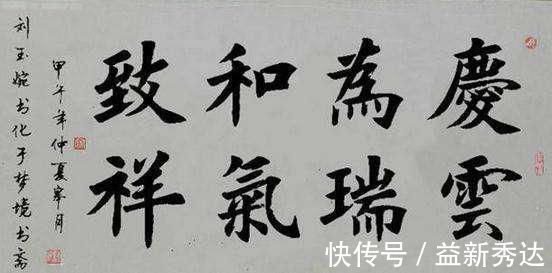 慶雲
為瑞
和氣
致祥
甲午年仲夏皋月
刘玉婉书化于梦境书斋
快传号 / 益新秀达